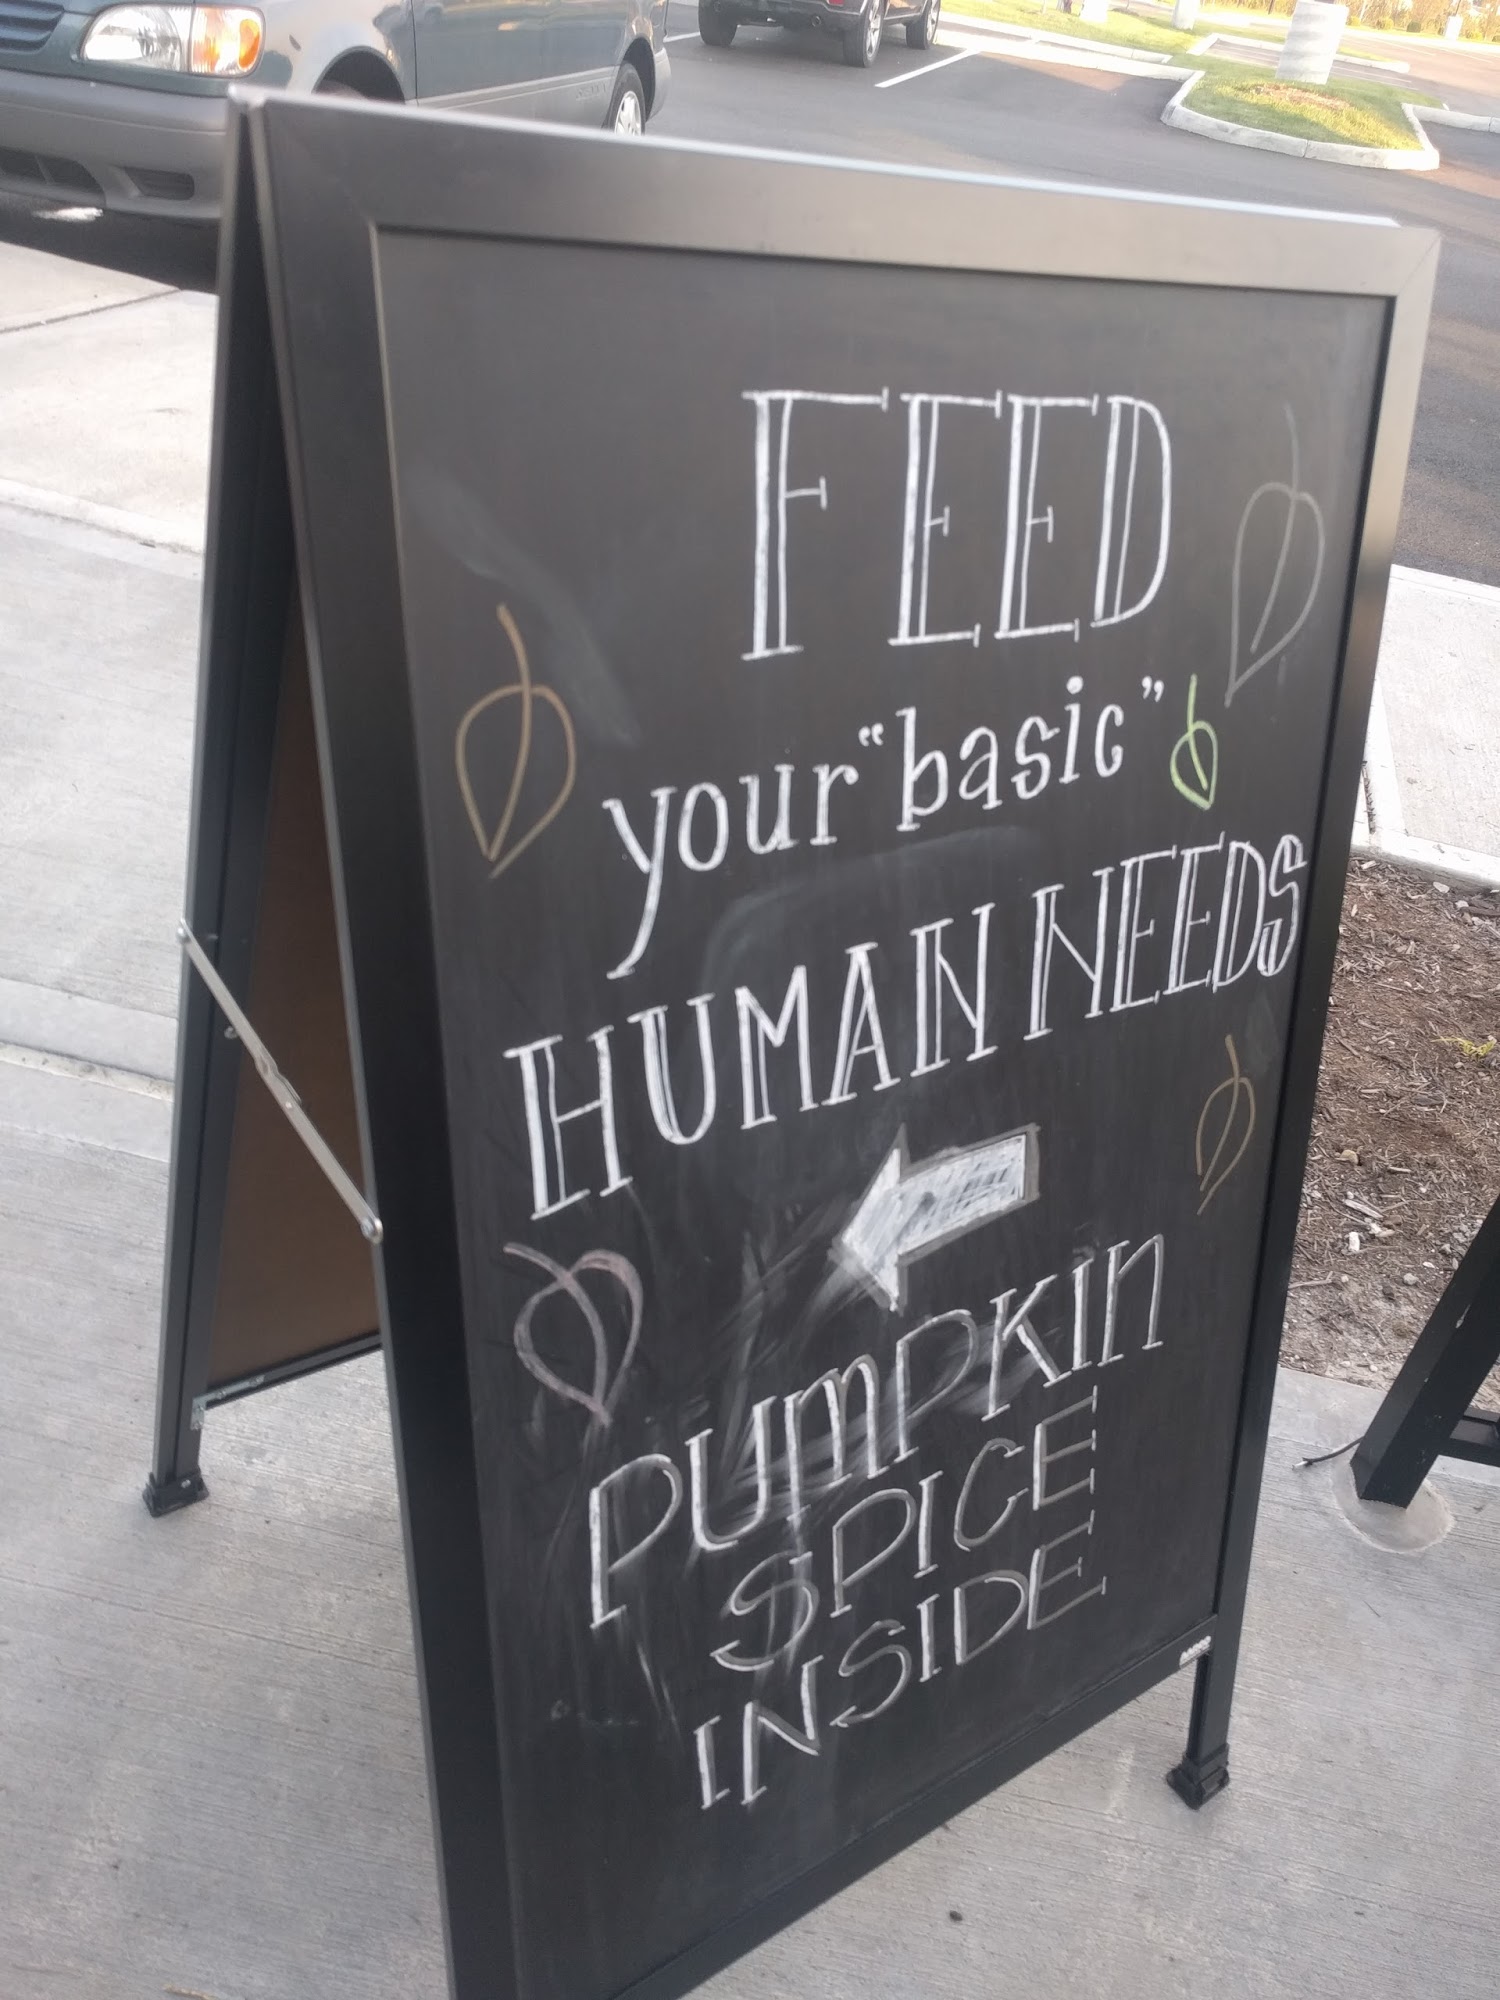 FEED
your "basic"
HUMAN NEEDS
PUMPKIN
SPICE
INSIDE